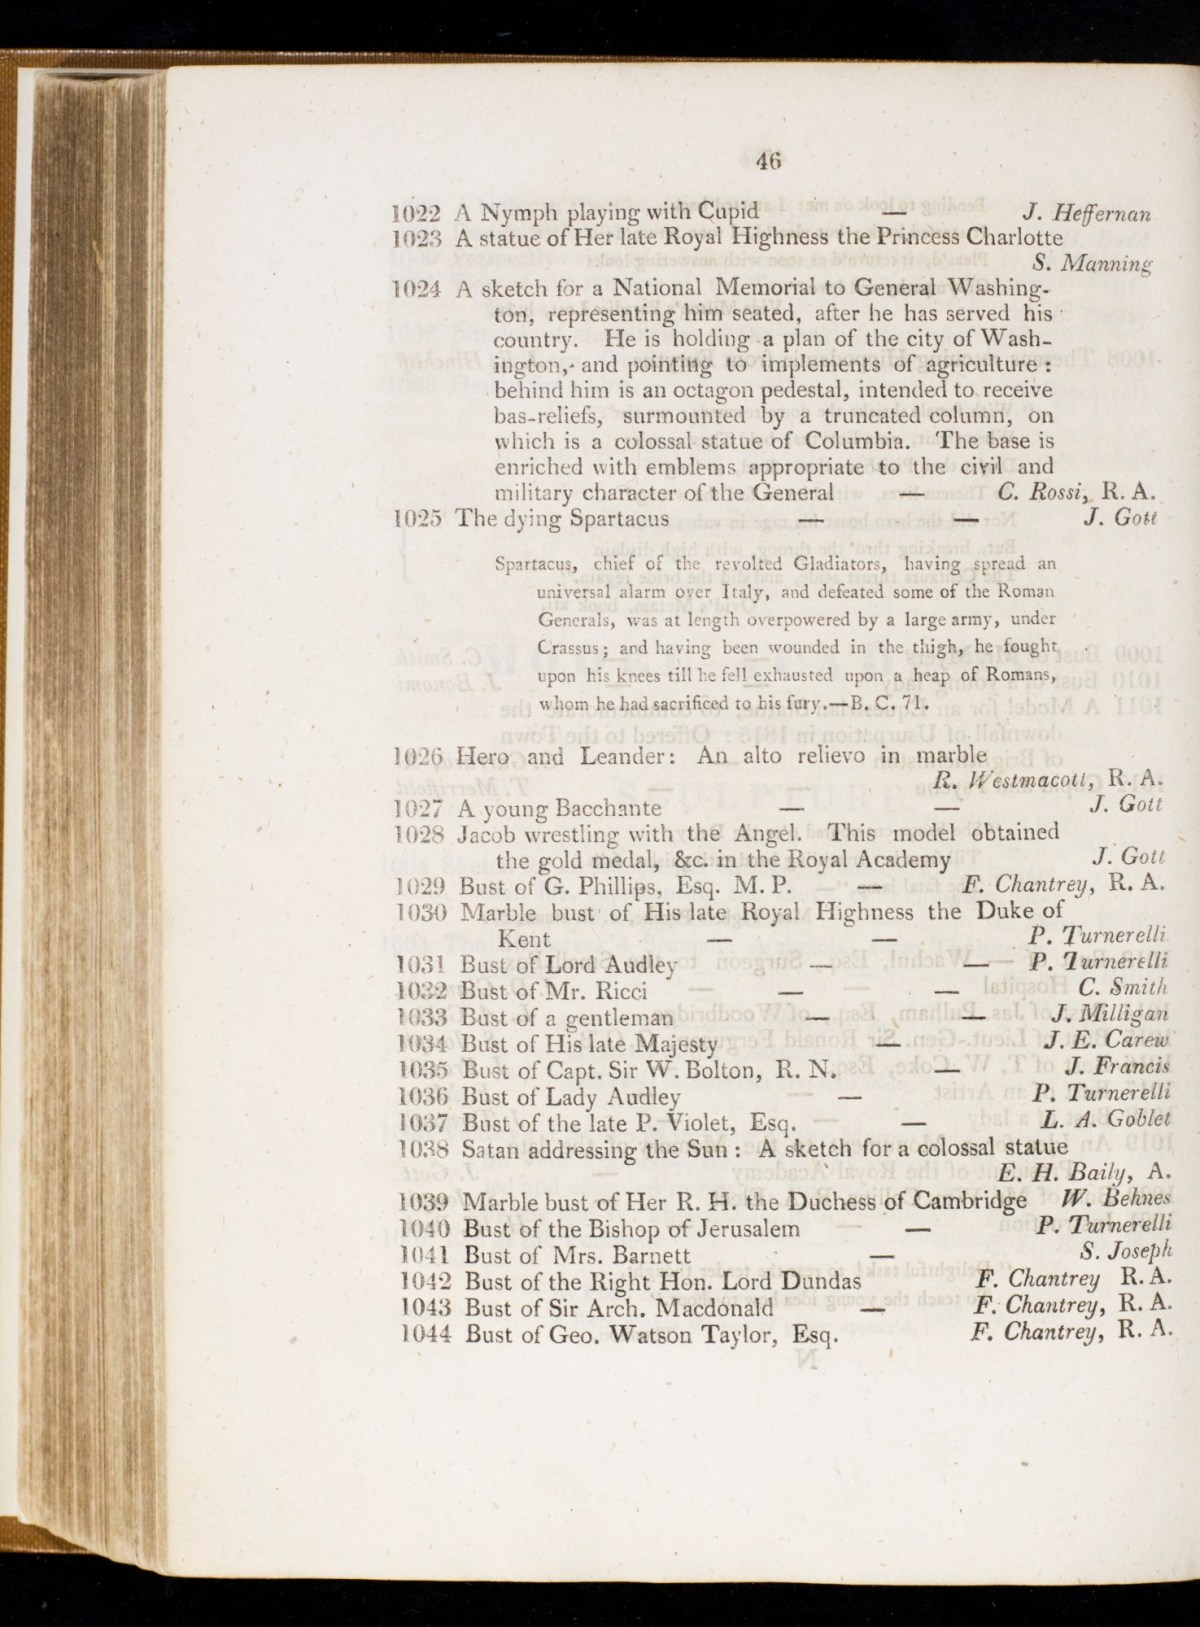 46
1022 A Nymph playing with Cupid — J. Heffernan
1023 A statue of Her late Royal Highness the Princess Charlotte
S. Manning
1024 A sketch for a National Memorial to General Washing-
ton, representing him seated, after he has served his
country. He is holding a plan of the city of Wash-
ington, and pointing to implements of agriculture :
behind him is an octagon pedestal, intended to receive
bas-reliefs, surmounted by a truncated column, on
which is a colossal statue of Columbia. The base is
enriched with emblems appropriate to the civil and
military character of the General — C. Rossi, R. A.
1025 The dying Spartacus — — J. Gott
Spartacus, chief of the revolted Gladiators, having spread an
universal alarm over Italy, and defeated some of the Roman
Generals, was at length overpowered by a large army, under
Crassus; and having been wounded in the thigh, he fought
upon his knees till he fell exhausted upon a heap of Romans,
whom he had sacrificed to his fury.—B. C. 71.
1026 Hero and Leander: An alto relievo in marble
R. Westmacott, R. A.
1027 A young Bacchante — — J. Gott
1028 Jacob wrestling with the Angel. This model obtained
the gold medal, &c. in the Royal Academy J. Gott
1029 Bust of G. Phillips, Esq. M. P. — F. Chantrey, R. A.
1030 Marble bust of His late Royal Highness the Duke of
Kent — — P. Turnerelli
1031 Bust of Lord Audley — — P. Turnerelli
1032 Bust of Mr. Ricci — — C. Smith
1033 Bust of a gentleman — — J. Milligan
1034 Bust of His late Majesty — J. E. Carew
1035 Bust of Capt. Sir W. Bolton, R. N. — J. Francis
1036 Bust of Lady Audley — P. Turnerelli
1037 Bust of the late P. Violet, Esq. — L. A. Goblet
1038 Satan addressing the Sun : A sketch for a colossal statue
E. H. Baily, A.
1039 Marble bust of Her R. H. the Duchess of Cambridge W. Behnes
1040 Bust of the Bishop of Jerusalem — P. Turnerelli
1041 Bust of Mrs. Barnett — S. Joseph
1042 Bust of the Right Hon. Lord Dundas F. Chantrey R. A.
1043 Bust of Sir Arch. Macdonald — F. Chantrey, R. A.
1044 Bust of Geo. Watson Taylor, Esq. F. Chantrey, R. A.